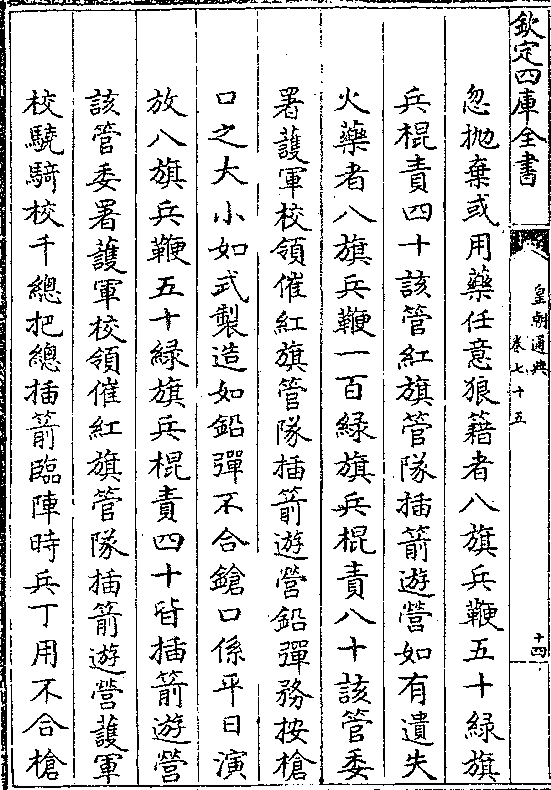 欽定四庫全書
皇朝通典
卷七十五
十四
忽抛棄或用藥任意狼籍者八旗兵鞭五十緑旗
兵棍責四十該管紅旗管隊插箭遊營如有遺失
火藥者八旗兵鞭一百緑旗兵棍責八十該管委
署護軍校領催紅旗管隊插箭遊營鉛彈務按槍
口之大小如式製造如鉛彈不合鎗口係平日演
放八旗兵鞭五十緑旗兵棍責四十皆插箭遊營
該管委署護軍校領催紅旗管隊插箭遊營護軍
校驍騎校千總把總插箭臨陣時兵丁用不合槍